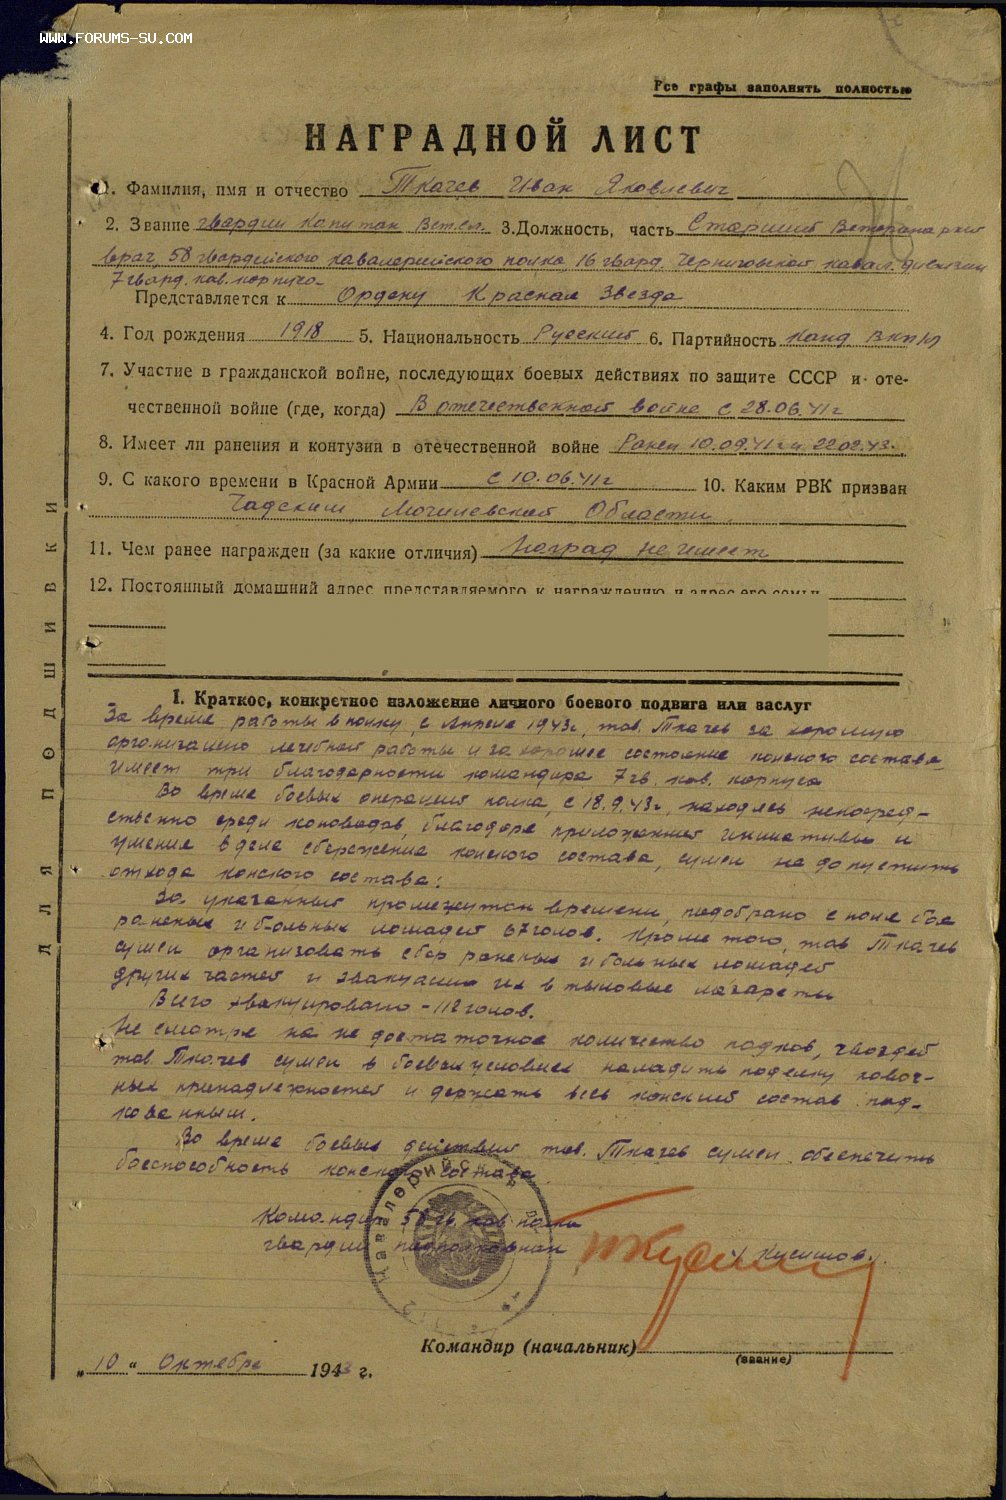 WWW.FORUMS-SU.COM
Все графы заполнять полностью
НАГРАДНОЙ ЛИСТ
1. Фамилия, имя и отчество Ткачев Иван Яковлевич
2. Звание гвардии Капитан Вет.сл. 3. Должность, часть Старший Ветеринарный
врач 58 гвардейского кавалерийского полка 16 гвард. Черниговской кавал. дивизии
7 гвард. кав. корпуса
Представляется к Ордену Красная Звезда
4. Год рождения 1918 5. Национальность Русский 6. Партийность канд ВКП(б)
7. Участие в гражданской войне, последующих боевых действиях по защите СССР и оте-
чественной войне (где, когда) В отечественной войне с 28.06.41г
8. Имеет ли ранения и контузии в отечественной войне Ранен 10.09.41г и 22.02.43г.
9. С какого времени в Красной Армии с 10.06.41г 10. Каким РВК призван
Могилевской Области
11. Чем ранее награжден (за какие отличия) Наград не имеет
12. Постоянный домашний адрес представляемого к награждению и адрес его семьи
I. Краткое, конкретное изложение личного боевого подвига или заслуг
За время работы в полку, с Апреля 1943г, тов. Ткачев за хорошую
организацию лечебной работы и за хорошее состояние конского состава
имеет три благодарности командира 7 гв. кав. корпуса
Во время боевых операций полка, с 18.9.43г, находясь непосред-
ственно среди коноводов, благодаря приложенной инициативы и
умения в деле сбережения конского состава, сумел не допустить
отхода конского состава:
За указанный промежуток времени, подобрано с поля боя
раненых и больных лошадей 67 голов. Кроме того, тов Ткачев
сумел организовать сбор раненых и больных лошадей
других частей и эвакуацию их в тыловые лазареты
Всего эвакуировано - 112 голов.
Не смотря на не достаточное количество подков, гвоздей
тов. Ткачев сумел в боевых условиях наладить поделку ковоч-
ных принадлежностей и держать весь конский состав под-
кованным.
Во время боевых действий тов. Ткачев сумел обеспечить
боеспособность конского состава
Командир 58 гв. кав полка
гвардии подполковник
Командир (начальник)
(звание)
„10“ Октября 1943 г.
ДЛЯ ПОДШИВКИ